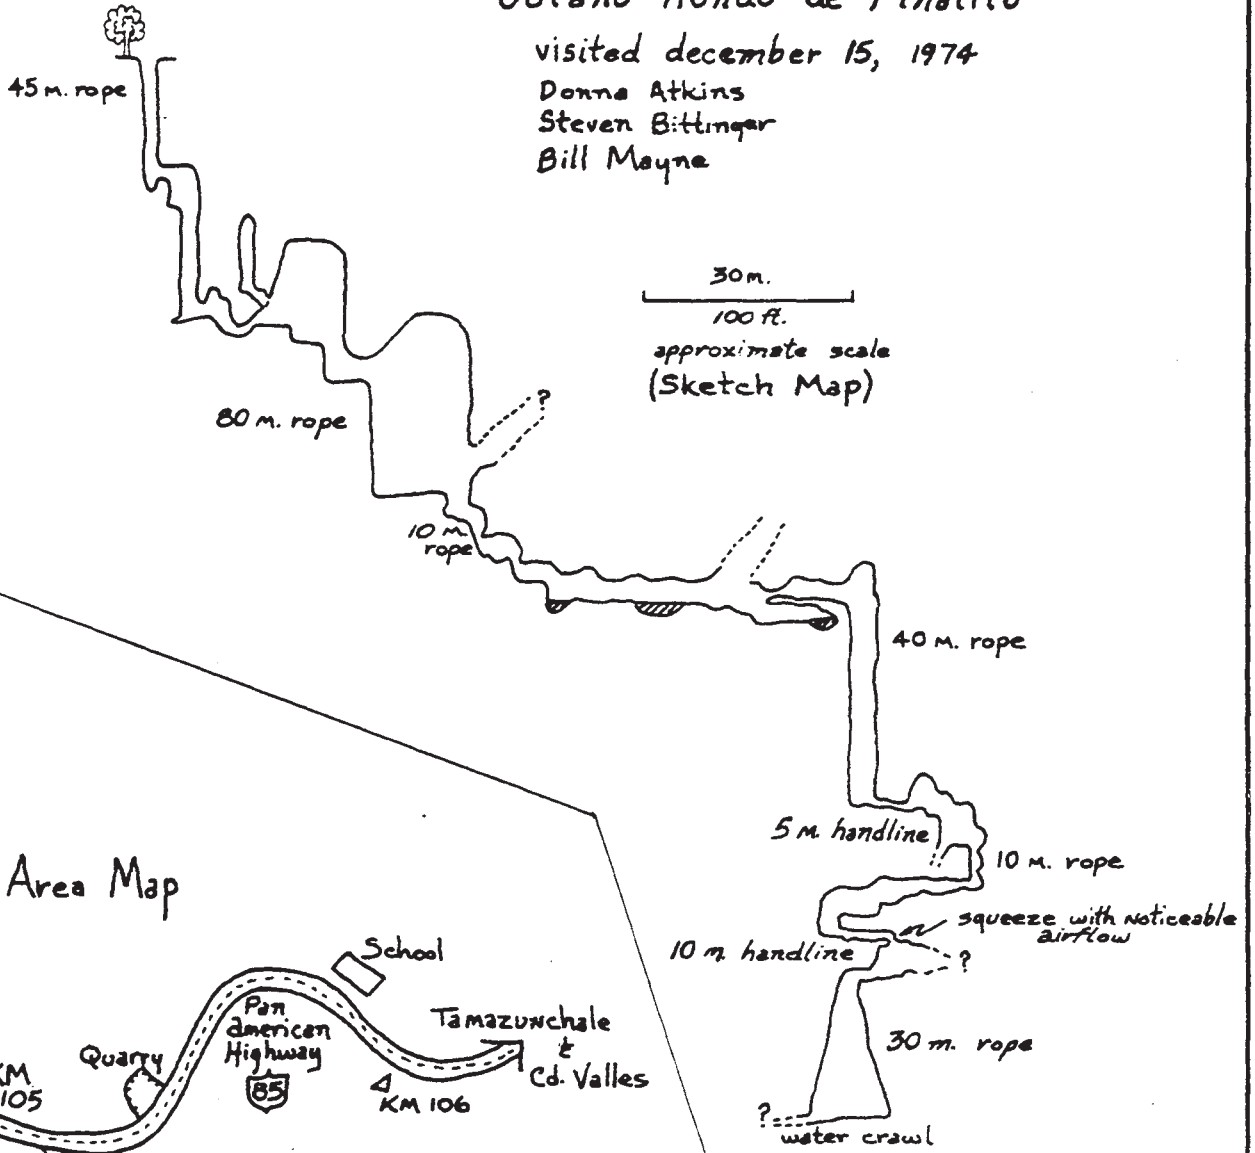 visited december 15, 1974
Donna Atkins
Steven Bittinger
Bill Mayne
45 m. rope
30 m.
100 ft.
approximate scale
(Sketch Map)
?
80 m. rope
10 m.
rope
40 m. rope
5 m. handline
10 m. rope
squeeze with noticeable
airflow
10 m. handline
?
30 m. rope
?
water crawl
Area Map
School
Pan
american
Highway
85
Quarry
KM
105
KM 106
Tamazunchale
&
Cd. Valles